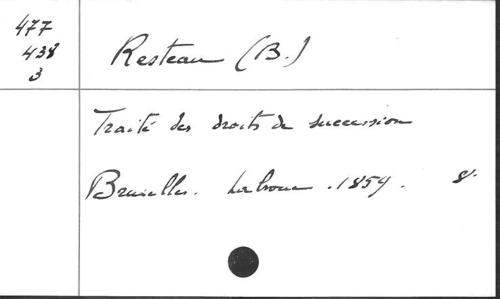 477
438
3
Resteau (B.)
Traité des droits de succession
Bruxelles. Labroue. 1854. 8°